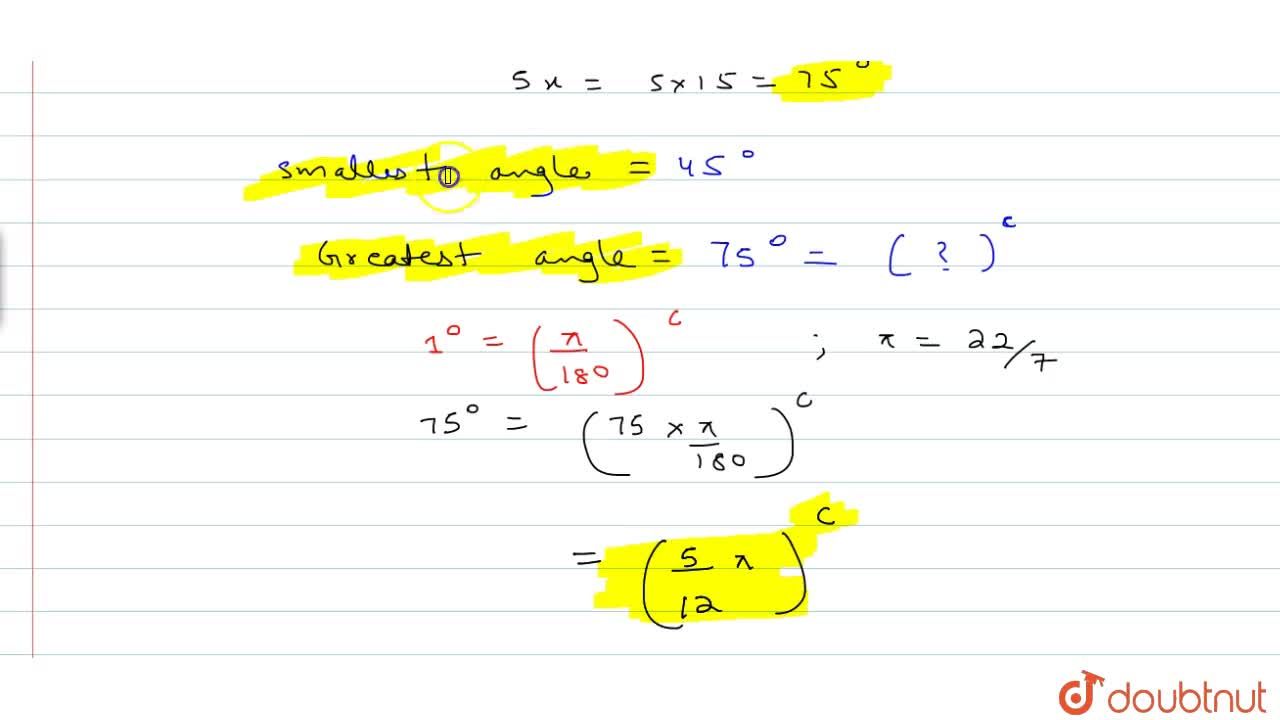 5x = 5×15 = 75°
smallest angle = 45°
Greatest angle = 75° = ( ? )ᶜ
1° = (π/180)ᶜ ; π = 22/7
75° = (75 × π/180)ᶜ
= (5/12 π)ᶜ
doubtnut